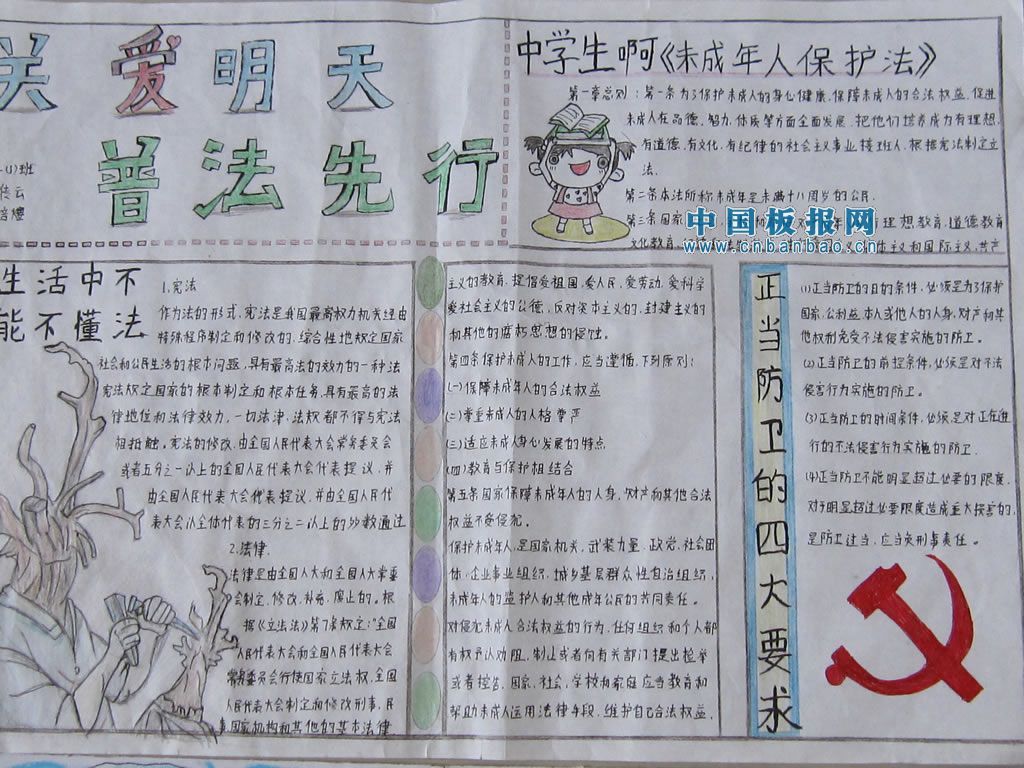 关爱明天
普法先行
班
中学生啊《未成年人保护法》
第一章总则：第一条为了保护未成人的身心健康，保障未成人的合法权益，促进
未成人在品德、智力、体质等方面全面发展，把他们培养成为有理想、
有道德、有文化、有纪律的社会主义事业接班人，根据宪法制定立
法。
第二条本法所称未成年是未满十八周岁的公民。
第三条国家
理想教育，道德教育
文化教育
主义和国际主义、共产
中国板报网
www.cnbanbao.cn
生活中不
能不懂法
1.宪法
作为法的形式，宪法是我国最高权力机关经由
特殊程序制定和修改的，综合性地规定国家
社会和公民生活的根本问题，具有最高法的效力的一种法
宪法规定国家的根本制定和根本任务，具有最高的法
律地位和法律效力，一切法津、法权都不得与宪法
相抵触。宪法的修改，由全国人民代表大会常务委员会
或者五分之一以上的全国人民代表大会代表提议，并
由全国人民代表大会代表提议，并由全国人民代
表大会以全体代表的三分之二以上的多数通过
2.法律.
法律是由全国人大和全国人大常委
会制定、修改、补充、废止的。根
据《立法法》第7条规定："全国
人民代表大会和全国人民代表大会
常务委员会行使国家立法权，全国
人民代表大会制定和修改刑事，民
事国家机构和其他的基本法律
主义的教育，提倡爱祖国、爱人民、爱劳动、爱科学
爱社会主义的公德，反对资本主义的，封建主义的
和其他的腐朽思想的侵蚀。
第四条保护未成人的工作，应当遵循，下列原则：
(一)保障未成年人的合法权益
(二)尊重未成人的人格尊严
(三)适应未成人身心发展的特点
(四)教育与保护相结合
第五条国家保障未成年人的人身，财产和其他合法
权益不受侵犯。
保护未成年人，是国家机关，武装力量、政党、社会团
体，企业事业组织，城乡基层群众性自治组织，
未成年人的监护人和其他成年公民的共同责任。
对侵犯未成人合法权益的行为，任何组织和个人都
有权予以劝阻、制止或者向有关部门提出检举
或者控告。国家、社会、学校和家庭应当教育和
帮助未成人运用法律手段，维护自己合法权益。
正当防卫的四大要求
(1)正当防卫的目的条件，必须是为了保护
国家，公利益，本人或他人的人身，财产和其
他权利免受不法侵害实施的防卫。
(2)正当防卫的前提条件，必须是对不法
侵害行为实施的防卫。
(3)正当防卫的时间条件，必须是对正在进
行的不法侵害行为实施的防卫.
(4)正当防卫不能明显超过必要的限度，
对于明显超过必要限度造成重大损害的，
是防卫过当，应当负刑事责任。